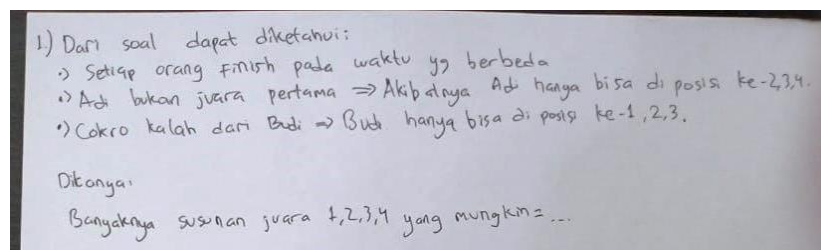 1.) Dari soal dapat diketahui:
•) Setiap orang Finish pada waktu yg berbeda
•) Adi bukan juara pertama ⇒ Akibatnya Adi hanya bisa di posisi ke-2,3,4.
•) Cokro kalah dari Budi ⇒ Budi hanya bisa di posisi ke-1,2,3.
Ditanya:
Banyaknya susunan juara 1,2,3,4 yang mungkin = ...